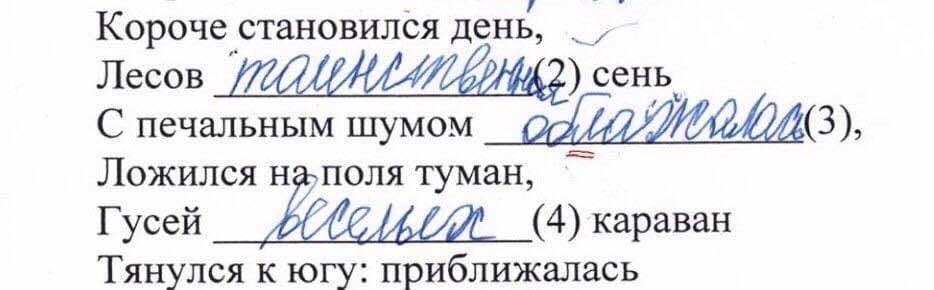 Короче становился день,
Лесов таинственная (2) сень
С печальным шумом облажалась (3),
Ложился на поля туман,
Гусей веселых (4) караван
Тянулся к югу: приближалась